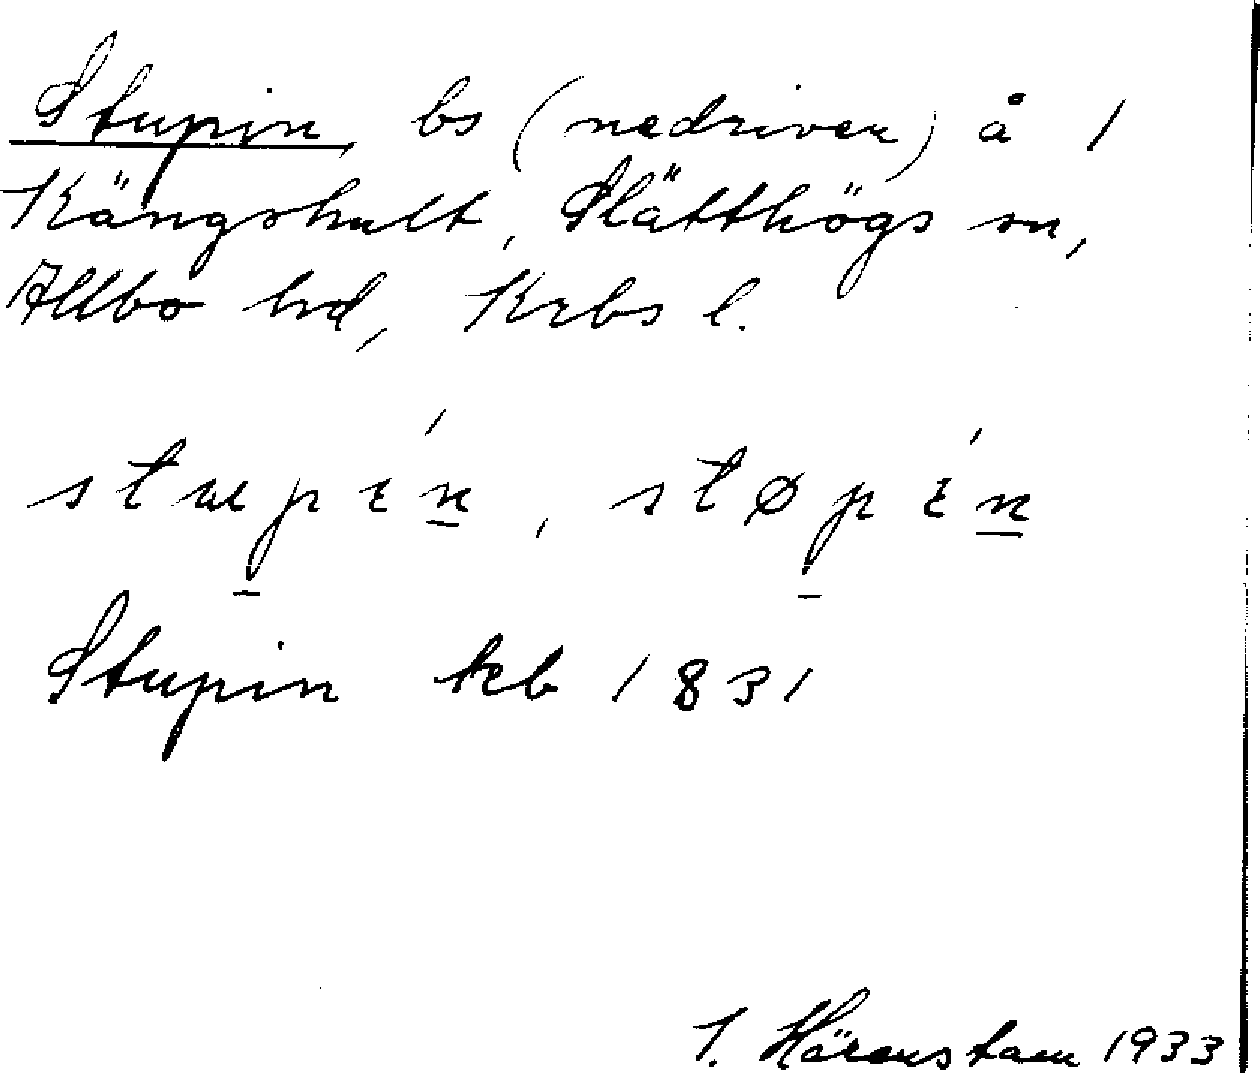 Stupin, bs (nedriven) å 1
Kängshult, Slätthögs sn,
Allbo hd, Krbs l.
stupın, støpın
Stupin kb 1831
I. Härenstam 1933